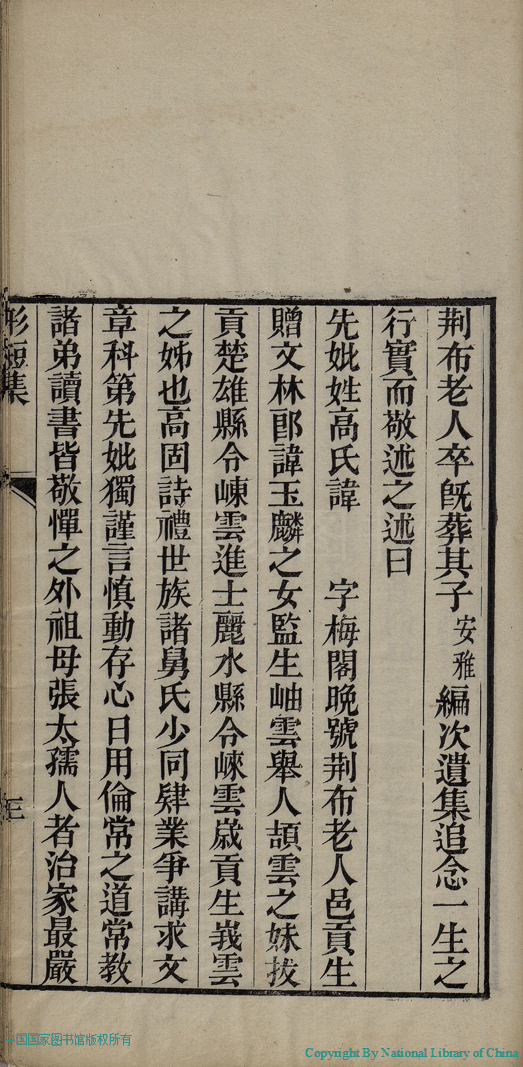 荆布老人卒旣葬其子安雅編次遺集追念一生之
行實而敬述之述曰
先妣姓高氏諱　　字梅閣晚號荆布老人邑貢生
贈文林郎諱玉麟之女監生岫雲舉人頡雲之妹拔
貢楚雄縣令崠雲進士麗水縣令崍雲嵗貢生峩雲
之姊也高固詩禮世族諸舅氏少同肄業爭講求文
章科第先妣獨謹言慎動存心日用倫常之道常教
諸弟讀書皆敬憚之外祖母張太孺人者治家最嚴
形短集
三
中国国家图书馆版权所有
Copyright By National Library of China